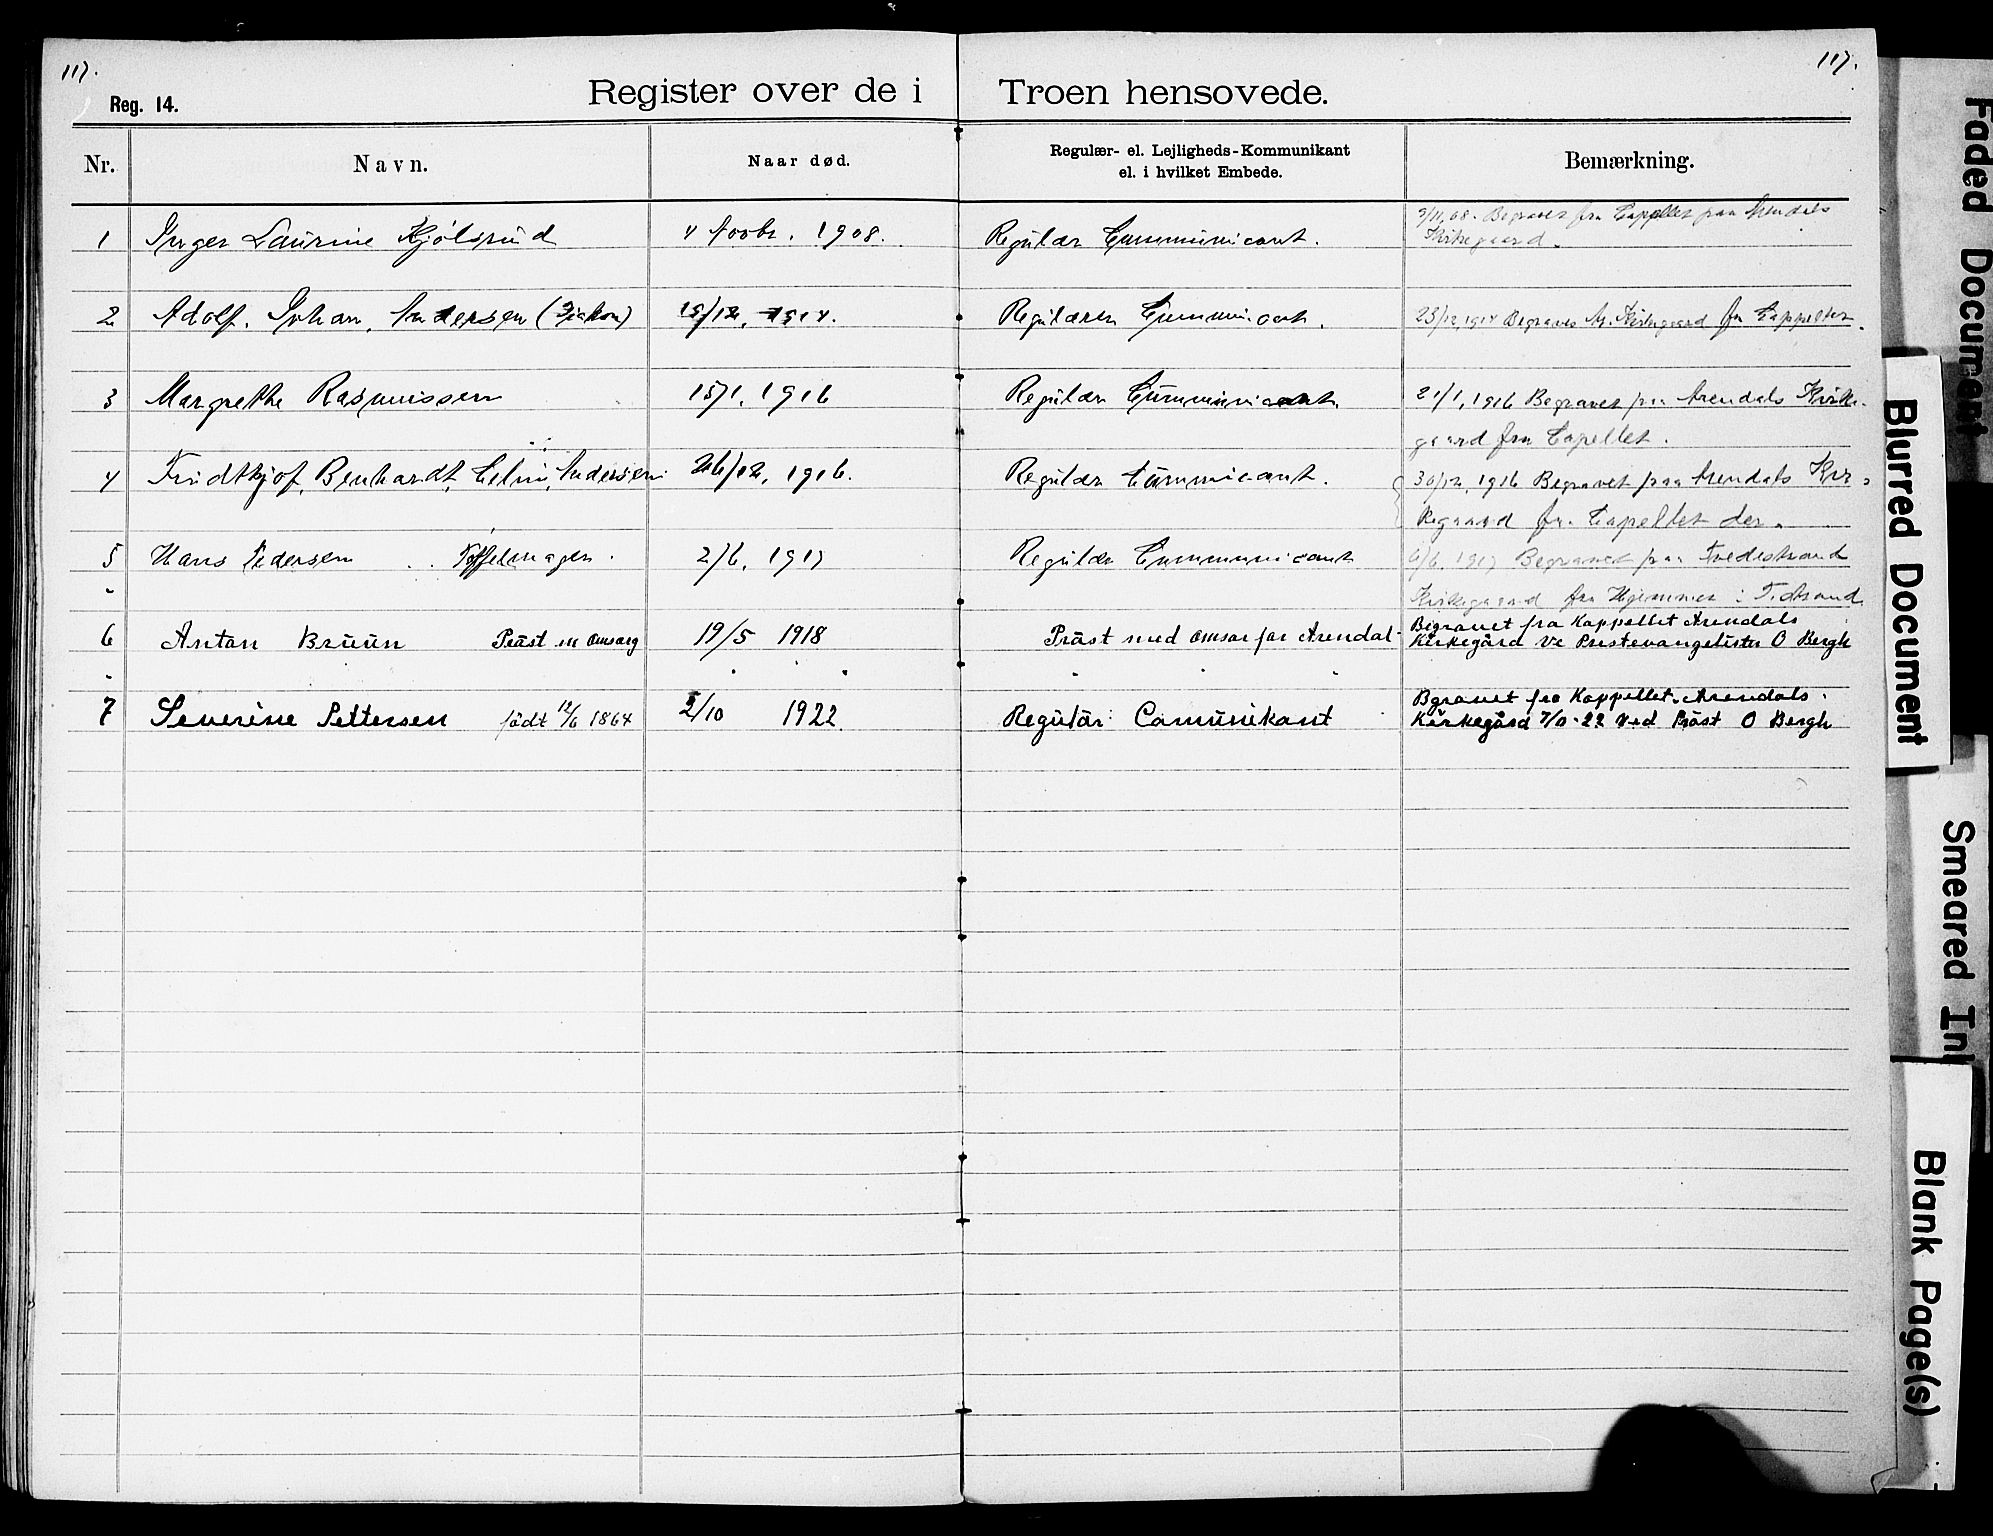 117.
117.
Reg. 14.
Register over de i Troen hensovede.
Nr. Navn. Naar død. Regulær- el. Lejligheds-Kommunikant el. i hvilket Embede. Bemærkning.
9/11, 08. Begravet fra Cappellet paa Arendals
1 Inger Laurine Kjølsrud 4 Novbr. 1908. Regulær Communicant. Kirkegaard.
2 Adolf. Johan. Andersen (Diakon) 19/12, 1914. Regulæren Communicant. 23/12, 1914 Begraves Kirkegaard fra Cappellet.
3 Margrethe Rasmussen 15/1, 1916 Regulær Communicant. 21/1, 1916 Begravet paa Arendals Kirke-
gaard fra Capellet.
4 Fridtkjof, Benhardt, Andersen 26/12, 1916. Regulær Communicant. 30/12, 1916 Begravet paa Arendals Kir-
kegaard fra Capellet der.
5 Hans Pedersen Tøffelmager. 2/6, 1917 Regulær Communicant 6/6, 1917 Begravet paa Tvedestrand
Kirkegaard fra Hjemmet i T.strand
Begravet fra Kappellet Arendals
6 Anton Bruun Präst m Omsorg 19/5 1918 Präst med omsor for Arendal- Kirkegård ve Prestevangelisten O Bergh
Bgravet fra Kappellet. Arendals.
7 Severine Pettersen född 12/6 1864 2/10 1922. Regulär Comunikant Kirkegård 7/10-22 ved Präst O Bergh
Faded Document
Blurred Document
Smeared Ink
Blank Page(s)